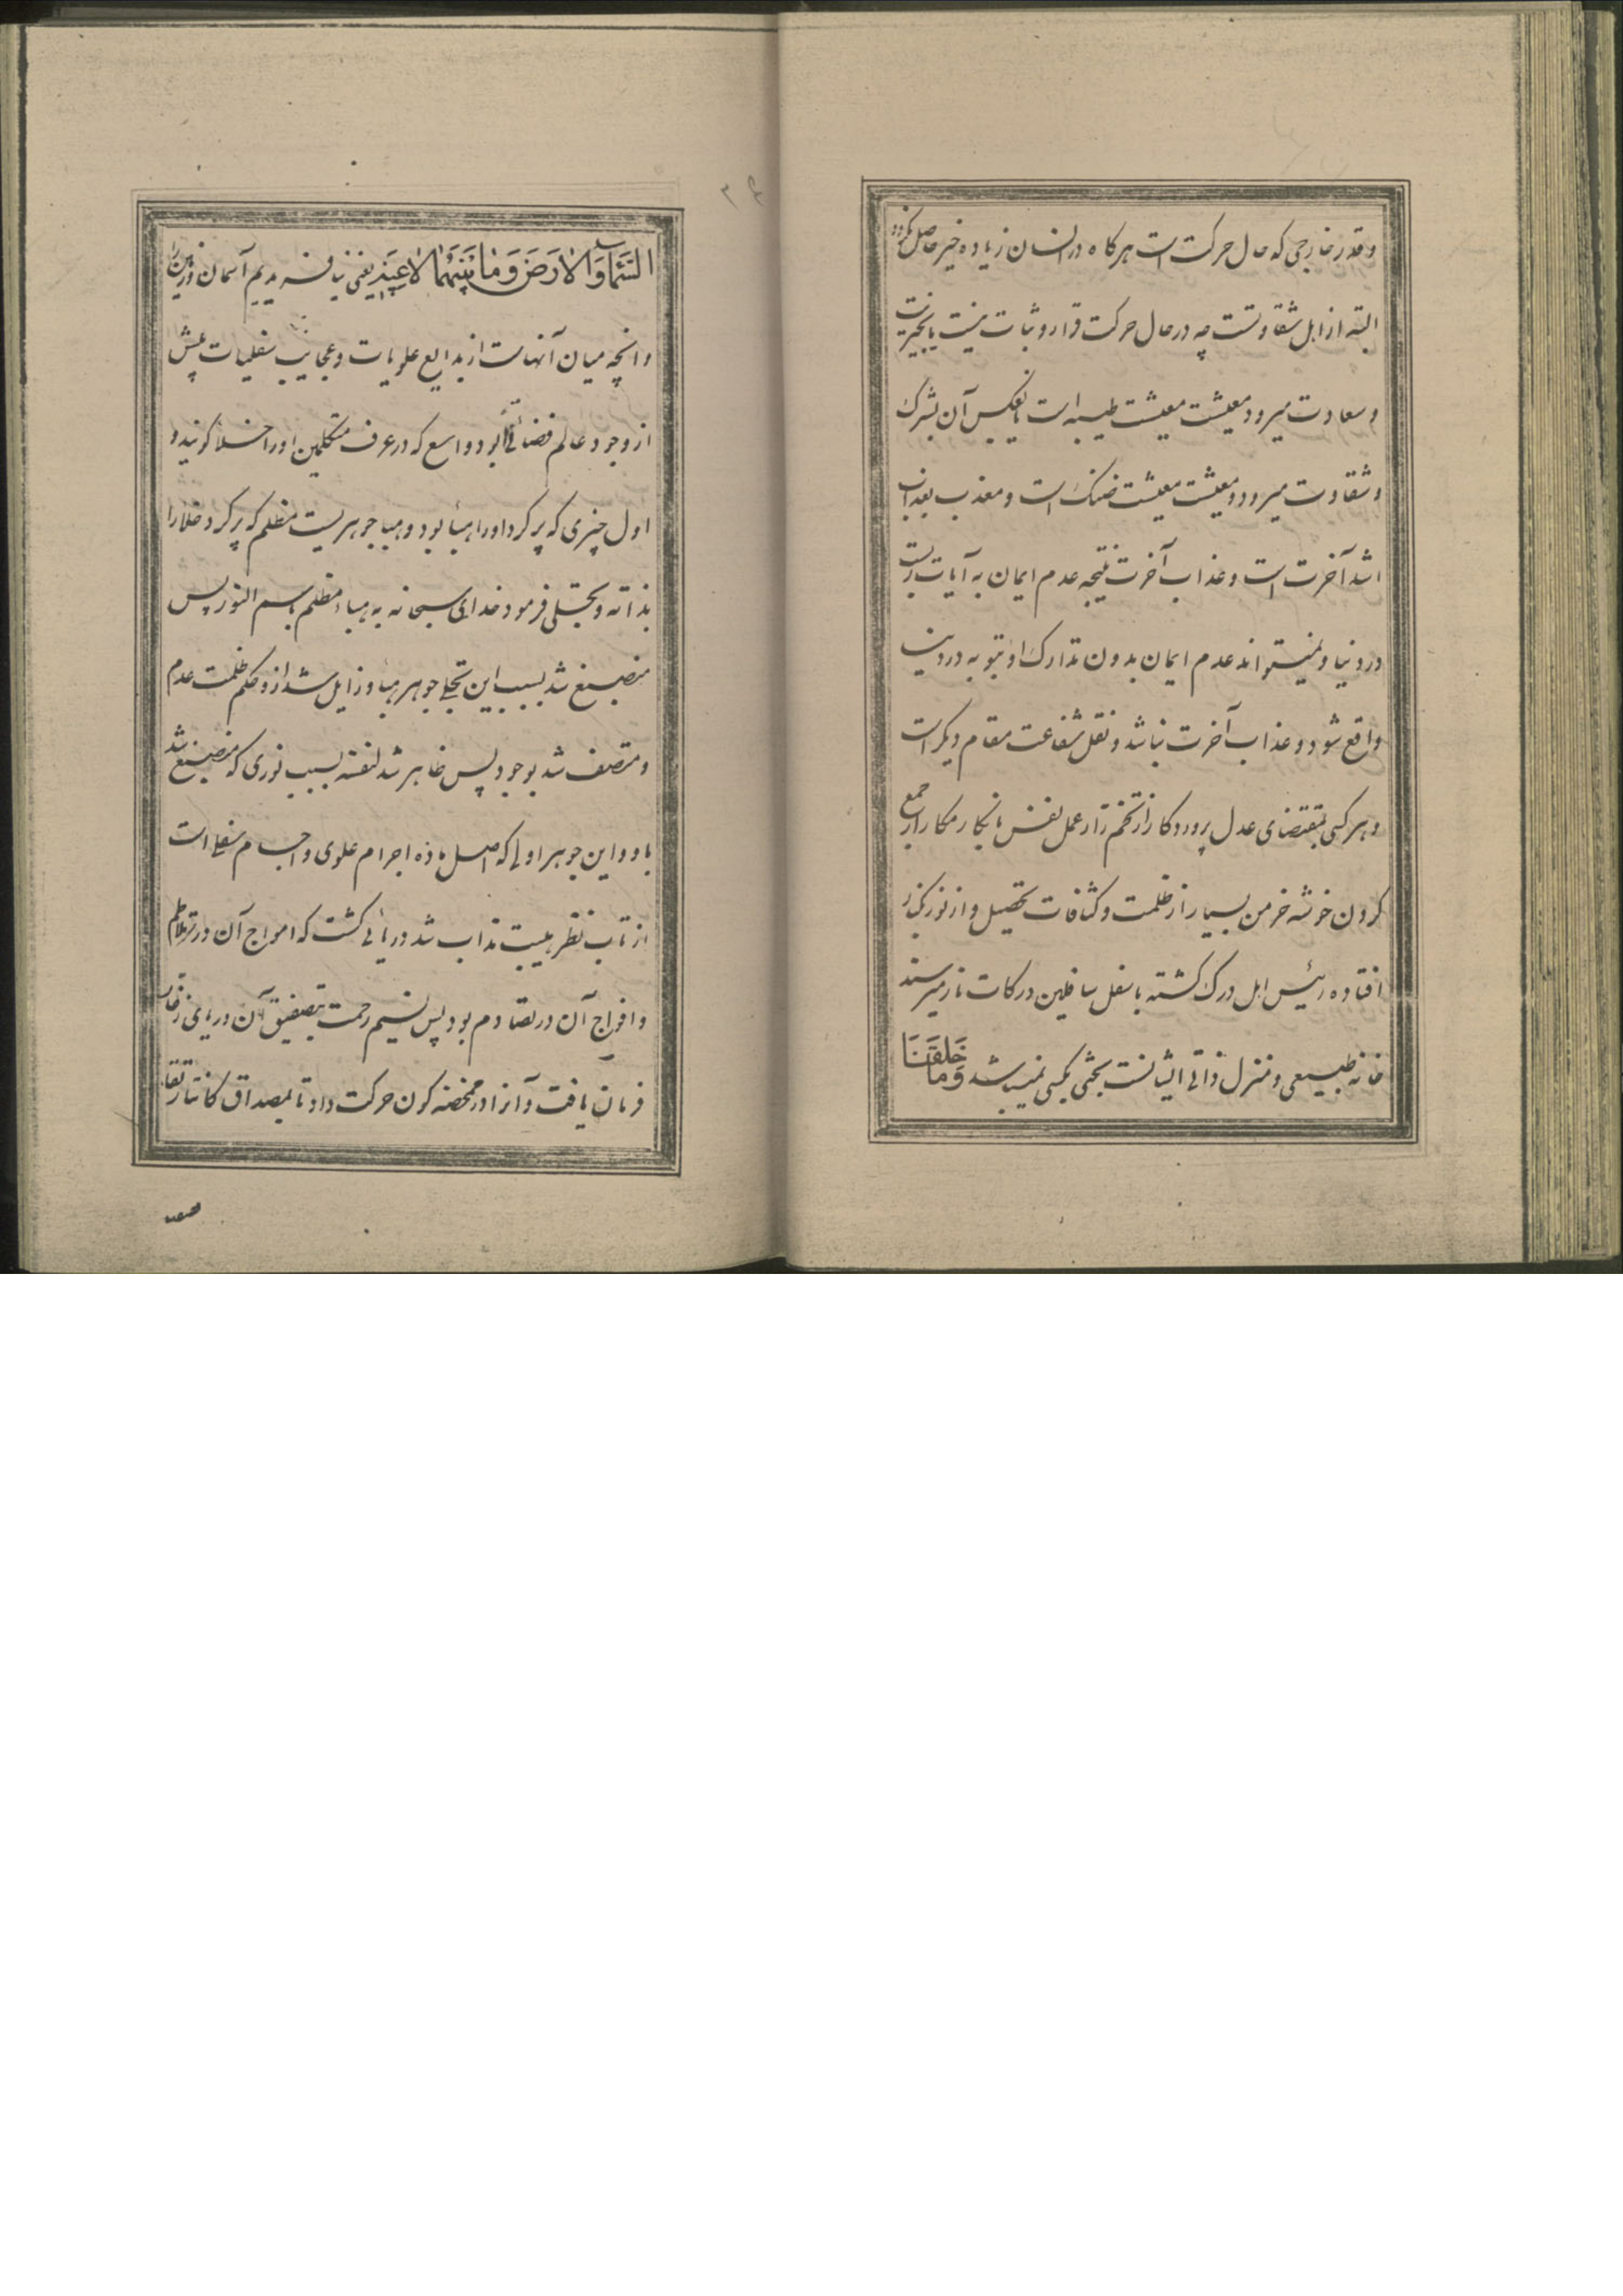 و قدر خارجی که حال حرکت است هرکاه در انسان زیاده خیر حاصل نکردد
البته از اهل شقاوتست چه در حال حرکت قرار و ثبات نیست یا بخیریت
و سعادت میرود معیشت معیشت طیبه است یا بعکس آن بشرک
و شقاوت میرود و معیشت معیشت ضنک است و معذب بعذاب
اشد آخرت است و عذاب آخرت نتیجه عدم ایمان به آیات ربست
در دنیا و نمیتواند عدم ایمان بدون تدارک او بتوبه در دنیا
واقع شود و عذاب آخرت نباشد و نقل شفاعت مقام دیکر است
و هرکس بمقتضای عدل پروردکار از تخم زار عمل نفس نابکار مکار از جمع
کردن خوشه خرمن بسیار از ظلمت و کثافات تحصیل و از نور بکنار
افتاده رئیس اهل درک کشته باسفل سافلین درکات نار میرسند
خانه طبیعی و منزل ذاتی ایشانست بحثی بکسی نمیباشد وَمَا خَلَقْنَا
السَّمَاءَ وَالْاَرْضَ وَمَا بَیْنَهُمَا لَاعِبِینَ یعنی نیافریدیم آسمان و زمین را
و آنچه میان آنهاست از بدایع علویات و عجایب سفلیات پیش
از وجود عالم فضائی بود واسع که در عرف متکلمین او را خلأ کویند و
اول چیزی که پر کرد او را هبأ بود و هبا جوهریست مظلم که پر کرد خلا را
بذاته و تجلی فرمود خدای سبحانه به هباء مظلم باسم النور پس
منصبغ شد بسبب این تجلی جوهر هبا و زایل شد از و حکم ظلمت عدم
و متصف شد بوجود پس ظاهر شد لنفسه بسبب نوری که منصبغ شد
باو و این جوهر اولی که اصل ماده اجرام علوی و اجسام سفلی است
از تاب نظر هیبت مذاب شد دریائی کشت که امواج آن در تلاطم
و افواج آن در تصادم بود پس نسیم رحمت بتصفیق آن دریای زخار
فرمان یافت و آنرا در مخضه کون حرکت داد تا بمصداق کانتا رتقا